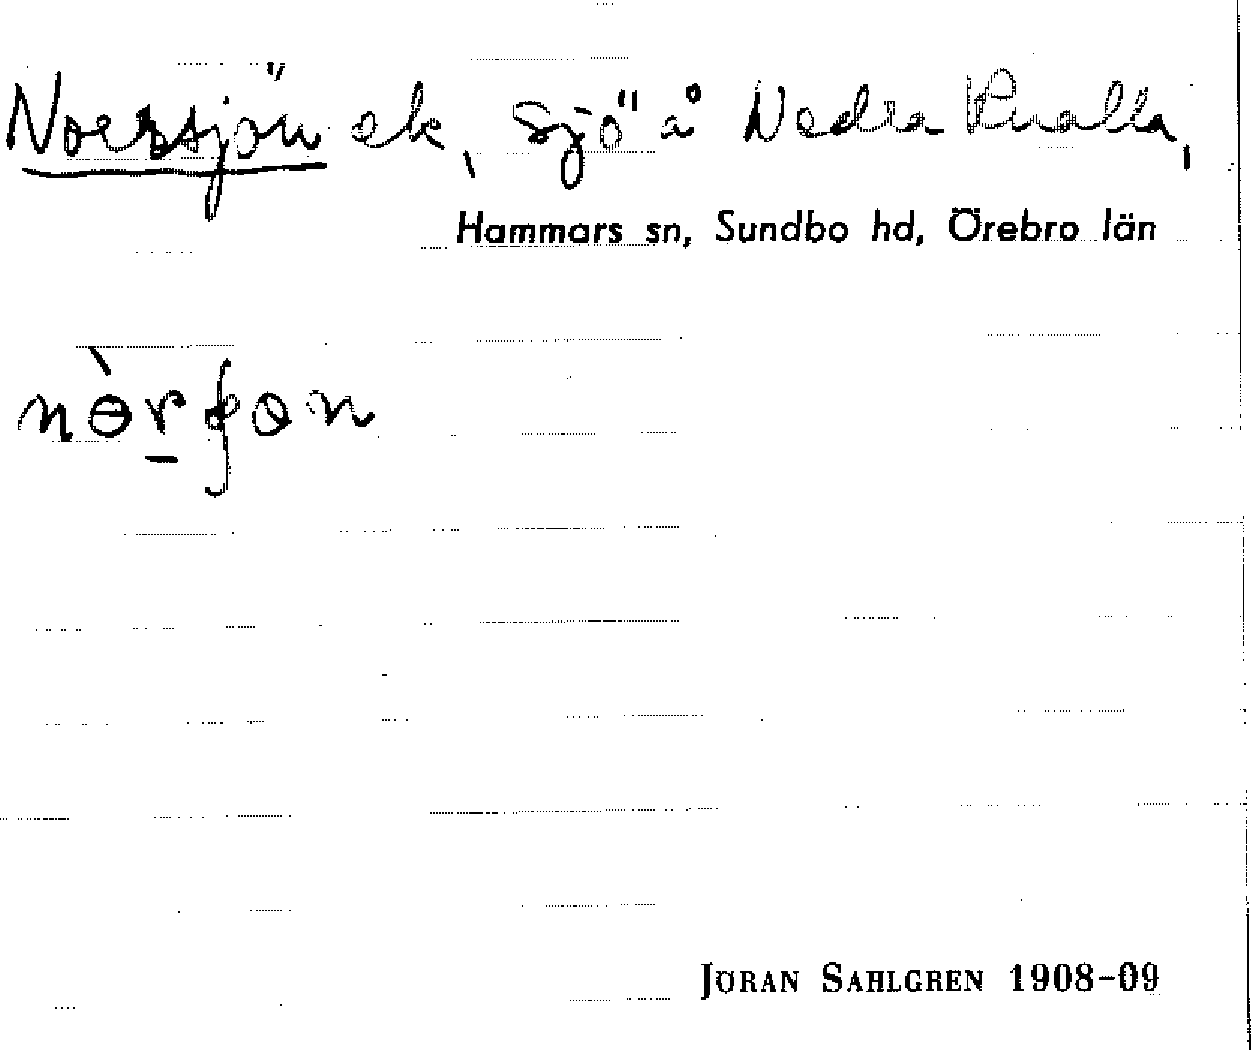 Norrsjön ek, sjö å Nedra Knalla,
Hammars sn, Sundbo hd, Örebro län
JÖRAN SAHLGREN 1908-09